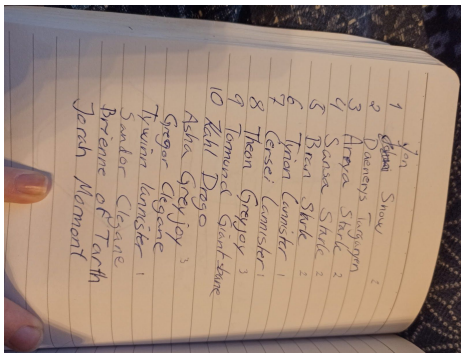 Jon
1 Snow
2 Daenerys Targaryen
3 Arya Stark 2
4 Sansa Stark 2
5 Bran Stark 2
6 Tyrion Lannister 1
7 Cersei Lannister 1
8 Theon Greyjoy 3
9 Tormund Giantsbane
10 Kahl Drogo
Asha Greyjoy 3
Gregor Clegane
Tywinn lannister 1
Sandor Clegane
Brienne of Tarth
Jorah Mormont